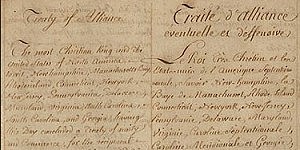 Treaty of Alliance
The most Christian King and the
United States of North America
Newhampshire, Massachusetts Bay
Rhodeisland, Connecticut, Newyork
New Jersey, Pennsylvania, Delaware
Maryland, Virginia, North Carolina
South Carolina, and Georgia, having
this Day concluded a Treaty of amity
and Commerce, for the reciprocal
Traité d'alliance
eventuelle et defensive
Le Roi très Chretien et les
Etats unis de l'Amerique Septentrionale
Newhampshire, la
Baye de Massachusset, Rhode island
Connecticut, Newyork, New Jersey
Pensylvanie, Delaware, Maryland
Virginie, Caroline septentrionale
Caroline Meridionale et Georgie